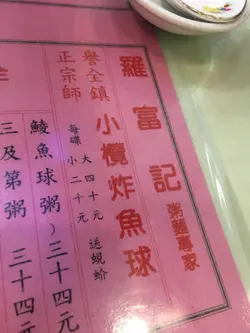 羅富記
粥麵專家
小欖炸魚球
譽全鎮
正宗師
每碟 大四十元 送蜆蚧
小二十元
鯪魚球粥 三十四元
三及第粥 三十四元